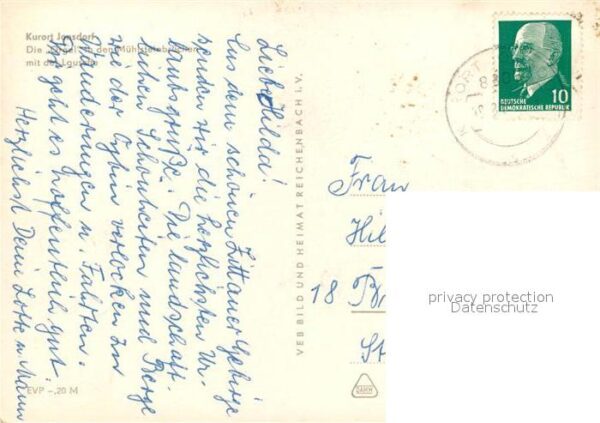 Kurort Jonsdorf
Die "Orgel" in den Mühlsteinbrüchen
mit der Lausche
Liebe Hilda!
Aus dem schönen Zittauer Gebirge
senden wir die herzlichsten Ur-
laubsgrüße. Die landschaft-
lichen Schönheiten und Berge
wie der Oybin verlocken zu
Wanderungen u. Fahrten.
Dir geht es hoffentlich gut
Herzlichst Deine Lotte u. Männe
EVP -,20 M
VEB BILD UND HEIMAT REICHENBACH I. V.
DEUTSCHE
DEMOKRATISCHE REPUBLIK
10
Frau
Hil
18 B
St
privacy protection
Datenschutz